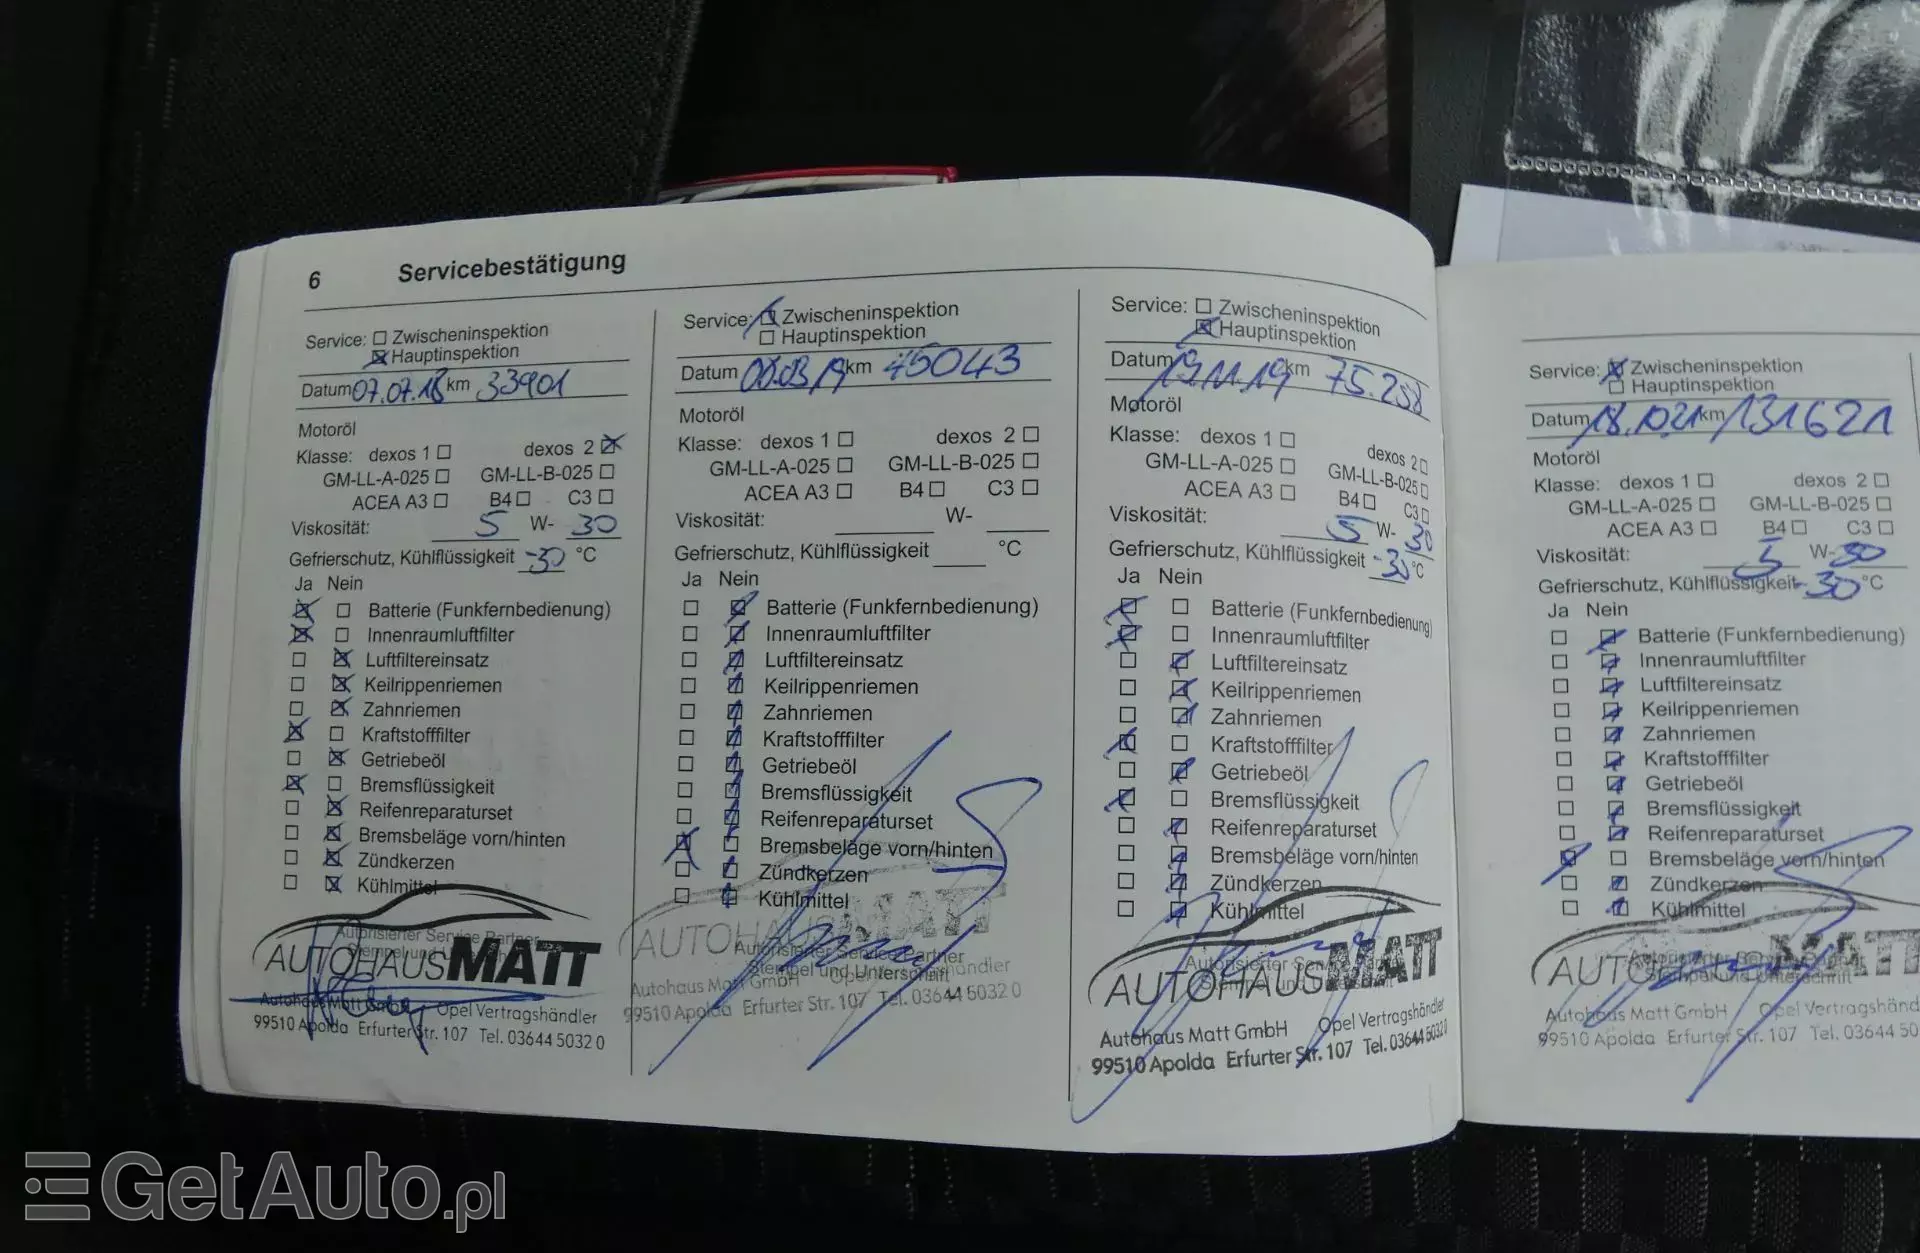 6 Servicebestätigung
Service: Zwischeninspektion
Hauptinspektion
Datum 07.07.18 km 33901
Motoröl
Klasse: dexos 1 dexos 2
GM-LL-A-025 GM-LL-B-025
ACEA A3 B4 C3
Viskosität: 5 W- 30
Gefrierschutz, Kühlflüssigkeit -30 °C
Ja Nein
Batterie (Funkfernbedienung)
Innenraumluftfilter
Luftfiltereinsatz
Keilrippenriemen
Zahnriemen
Kraftstofffilter
Getriebeöl
Bremsflüssigkeit
Reifenreparaturset
Bremsbeläge vorn/hinten
Zündkerzen
Kühlmittel
Autorisierter Service Partner
AUTOHAUS MATT
Autohaus Matt GmbH Opel Vertragshändler
99510 Apolda Erfurter Str. 107 Tel. 03644 5032 0
Service: Zwischeninspektion
Hauptinspektion
Datum 03 19 km 45043
Motoröl
Klasse: dexos 1 dexos 2
GM-LL-A-025 GM-LL-B-025
ACEA A3 B4 C3
Viskosität: W-
Gefrierschutz, Kühlflüssigkeit °C
Ja Nein
Batterie (Funkfernbedienung)
Innenraumluftfilter
Luftfiltereinsatz
Keilrippenriemen
Zahnriemen
Kraftstofffilter
Getriebeöl
Bremsflüssigkeit
Reifenreparaturset
Bremsbeläge vorn/hinten
Zündkerzen
Kühlmittel
AUTOHAUS MATT
Autorisierter Service Partner
Stempel und Unterschrift
Autohaus Matt GmbH Opel Vertragshändler
99510 Apolda Erfurter Str. 107 Tel. 03644 5032 0
Service: Zwischeninspektion
Hauptinspektion
Datum 19.11.19 km 75.258
Motoröl
Klasse: dexos 1 dexos 2
GM-LL-A-025 GM-LL-B-025
ACEA A3 B4 C3
Viskosität: 5 W- 30
Gefrierschutz, Kühlflüssigkeit -30 °C
Ja Nein
Batterie (Funkfernbedienung)
Innenraumluftfilter
Luftfiltereinsatz
Keilrippenriemen
Zahnriemen
Kraftstofffilter
Getriebeöl
Bremsflüssigkeit
Reifenreparaturset
Bremsbeläge vorn/hinten
Zündkerzen
Kühlmittel
AUTOHAUS MATT
Autohaus Matt GmbH Opel Vertragshändler
99510 Apolda Erfurter Str. 107 Tel. 03644 5032 0
Service: Zwischeninspektion
Hauptinspektion
Datum 18.10.21 km 131621
Motoröl
Klasse: dexos 1 dexos 2
GM-LL-A-025 GM-LL-B-025
ACEA A3 B4 C3
Viskosität: 5 W- 30
Gefrierschutz, Kühlflüssigkeit -30 °C
Ja Nein
Batterie (Funkfernbedienung)
Innenraumluftfilter
Luftfiltereinsatz
Keilrippenriemen
Zahnriemen
Kraftstofffilter
Getriebeöl
Bremsflüssigkeit
Reifenreparaturset
Bremsbeläge vorn/hinten
Zündkerzen
Kühlmittel
AUTOHAUS MATT
Autohaus Matt GmbH Opel Vertragshänd
99510 Apolda Erfurter Str. 107 Tel. 03644 50
GetAuto.pl